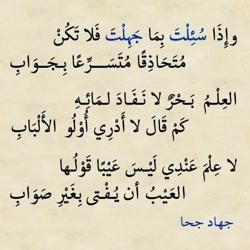 وإِذَا سُئِلْتَ بِمَا جَهِلْتَ فَلا تَكُنْ
مُتَحَاذِقًا مُتَسَــرِّعًا بِجَـوَابِ
العِلْمُ بَحْرٌ لا نَـفَـادَ لـمَائِـهِ
كَمْ قَالَ لا أَدْرِي أُوْلُو الأَلْبَابِ
لا عِلْمَ عَنْدِي لَيْـسَ عَيْبًا قَوْلُـها
العَيْبُ أن يُـفْـتى بِغَيْرِ صَوَابِ
جهاد جحا